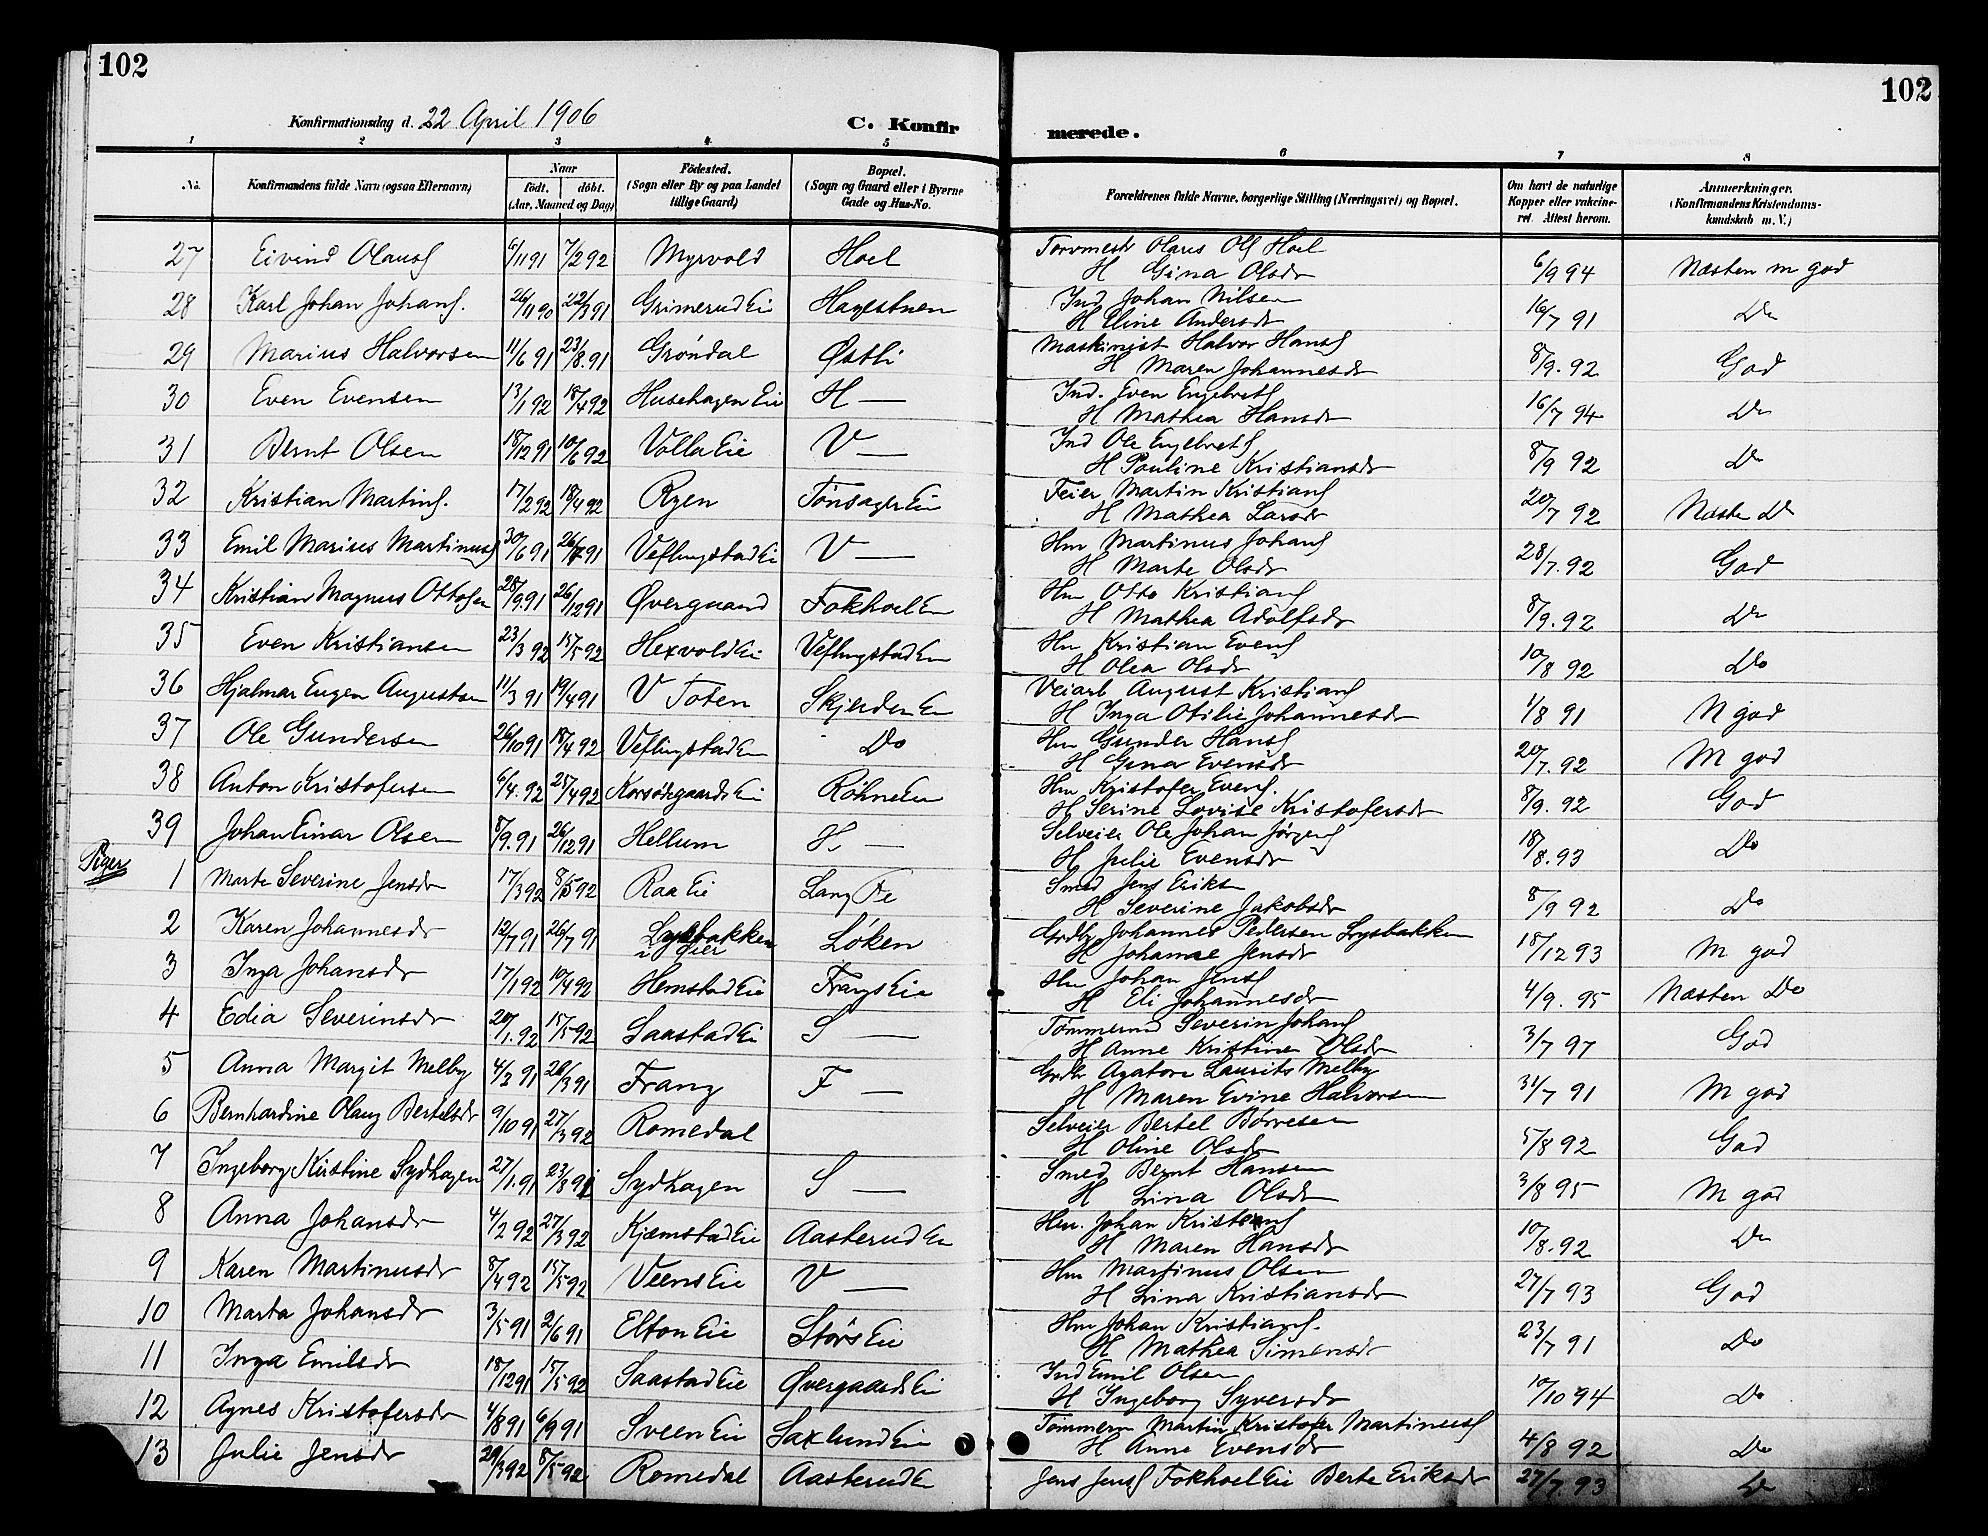 102
102
Konfirmationsdag d. 22 April 1906
C. Konfir
merede.
1 2 3 4 5 6 7 8
No.
Konfirmandens fulde Navn (ogsaa Efternavn)
Naar
födt. döbt.
(Aar, Maaned og Dag)
Födested.
(Sogn eller By og paa Landet
tillige Gaard)
Bopæl.
(Sogn og Gaard eller i Byerne
Gade og Hus-No.
Forældrenes fulde Navne, borgerlige Stilling (Næringsvei) og Bopæl.
Om havt de naturlige
Kopper eller vakcine-
ret. Attest herom.
Anmerkninger.
(Konfirmandens Kristendoms-
kundskab m. V.)
27 Eivind Olauss 6/11 91 7/2 92 Myrvold Hoel Torvmestr Olaus Ols Hoel
H Gina Olsdr 6/9 94 Næsten m god
28 Karl Johan Johans. 26/11 90 22/3 91 Grimerud Eie Hagestuen Ind Johan Nilsen
H Eline Andersdr 16/7 91 Do
29 Marius Halvorsen 11/6 91 23/8. 91 Gröndal Østli Maskinist Halvor Hans
H Maren Johannesdr 8/9. 92 God
30 Even Evensen 13/1 92 18/4 92 Husehagen Eie H — Ind. Even Engebrets
H Mathea Hansdr 16/7 94 Do
31 Bernt Olsen 18/12 91 10/6 92 Volla Eie V — Ind Ole Engebrets
H Pauline Kristiansdr 8/9 92 Do
32 Kristian Martins. 17/2 92 18/4 92 Ryen Tönsager Eie Feier Martin Kristians
H Mathea Larsdr 20/7 92 Næsten Do
33 Emil Marius Martinuss 30/6 91 26/7 91 Veflingstad Ei V — Hm Martinus Johans
H Marte Olsdr 28/7. 92 God
34 Kristian Magnus Ottosen 28/9. 91 26/12 91 Øvergaard Fokhoel Eie Hm Otto Kristians
H Mathea Adolfsdr 8/9. 92 Do
35 Even Kristiansen 23/3 92 15/5 92 Hexvold Ei Veflingstad Eie Hm Kristian Evens
H Olea Olsdr 10/8 92 Do
36 Hjalmar Eugen Augustsen 11/3 91 19/4 91 V Toten Skjerden Eie Veiarb August Kristians
H Inga Otilie Johannesdr 1/8 91 M god
37 Ole Gundersen 26/10 91 18/4 92 Veflingstad Eie Do Hm Gunder Hans
H Gina Evensdr 20/7. 92 M god
38 Anton Kristofersen 6/4. 92 25/4 92 Korsödegaards Ei Röhne Eie Hm Kristofer Evens.
H Serine Lovise Kristofersdr 8/9. 92 God
39 Johan Einar Olsen 8/9. 91 26/12 91 Hellum H — Selveier Ole Johan Jörgens
H Julie Evensdr 18/8. 93 Do
Piger
1 Marte Severine Jensdr 17/3 92 8/5 92 Raa Eie Lang Eie Smed Jens Eriksen
H Severine Jakobsdr 8/9 92 Do
2 Karen Johannesdr 12/7 91 26/7 91 Lysbakken Löken Grdbr Johannes Pedersen Lysbakken
H Johanne Jensdr 18/12 93 M god
3 Inga Johansdr 17/1 92 10/4 92 Hemstad Eie Frangs Eie Hm Johan Jenss
H Eli Johannesdr 4/9. 95 Næsten Do
4 Edia Severinsdr 20/1. 92 15/5 92 Saastad Ei S — Tömmermd Severin Johans
H Anne Kristine Olsdr 3/7 97 God
5 Anna Margit Melby 4/2 91 28/3 91 Frang F — Grdbr Agaton Laurits Melby
H Maren Evine Halvorsen 31/7 91 M god
6 Bernhardine Olaug Bertelsdr 9/10 91 27/3 92 Romedal Selveier Bertel Börresen
H Oline Olsdr 5/8 92 God
7 Ingeborg Kristine Sydhagen 27/1. 91 23/8 91 Sydhagen S — Smed Bernt Hansen
H Lina Olsdr 3/8 95 M god
8 Anna Johansdr 4/2 92 27/3 92 Kjæmstad Eie Aasterud Eie Hm. Johan Kristians
H Maren Hansdr 10/8. 92 Do
9 Karen Martinusdr 8/4 92 15/5 92 Veens Eie V — Hm Martinus Olsen
H Lina Kristiansdr 27/7 93 God
10 Marta Johansdr 3/5 91 2/6 91 Elton Eie Störs Eie Hm Johan Kristians.
H Mathea Simensdr 23/7 91 Do
11 Inga Emilsdr 18/12 91 15/5 92 Saastad Eie Øvergaards Eie Ind Emil Olsen
H Ingeborg Syversdr 10/10 94 Do
12 Agnes Kristofersdr 4/8 91 6/9 91 Sveen Eie Saxlund Eie Tömmerm Martin Kristofer Martinuss
H Anne Evensdr 4/8 92 Do
13 Julie Jensdr 29/3 92 8/5 92 Romedal Aasterud Eie Jens Jenss Fokhoel Eie Berte Eriksdr 27/7. 93 Do